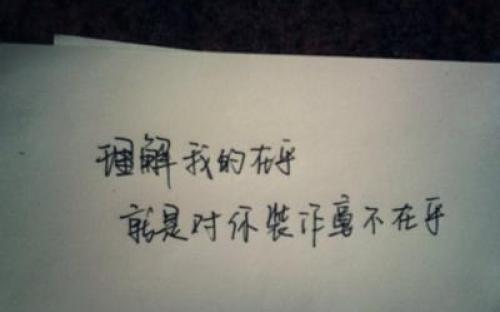 理解我的在乎
就是对你装作⾮不在乎